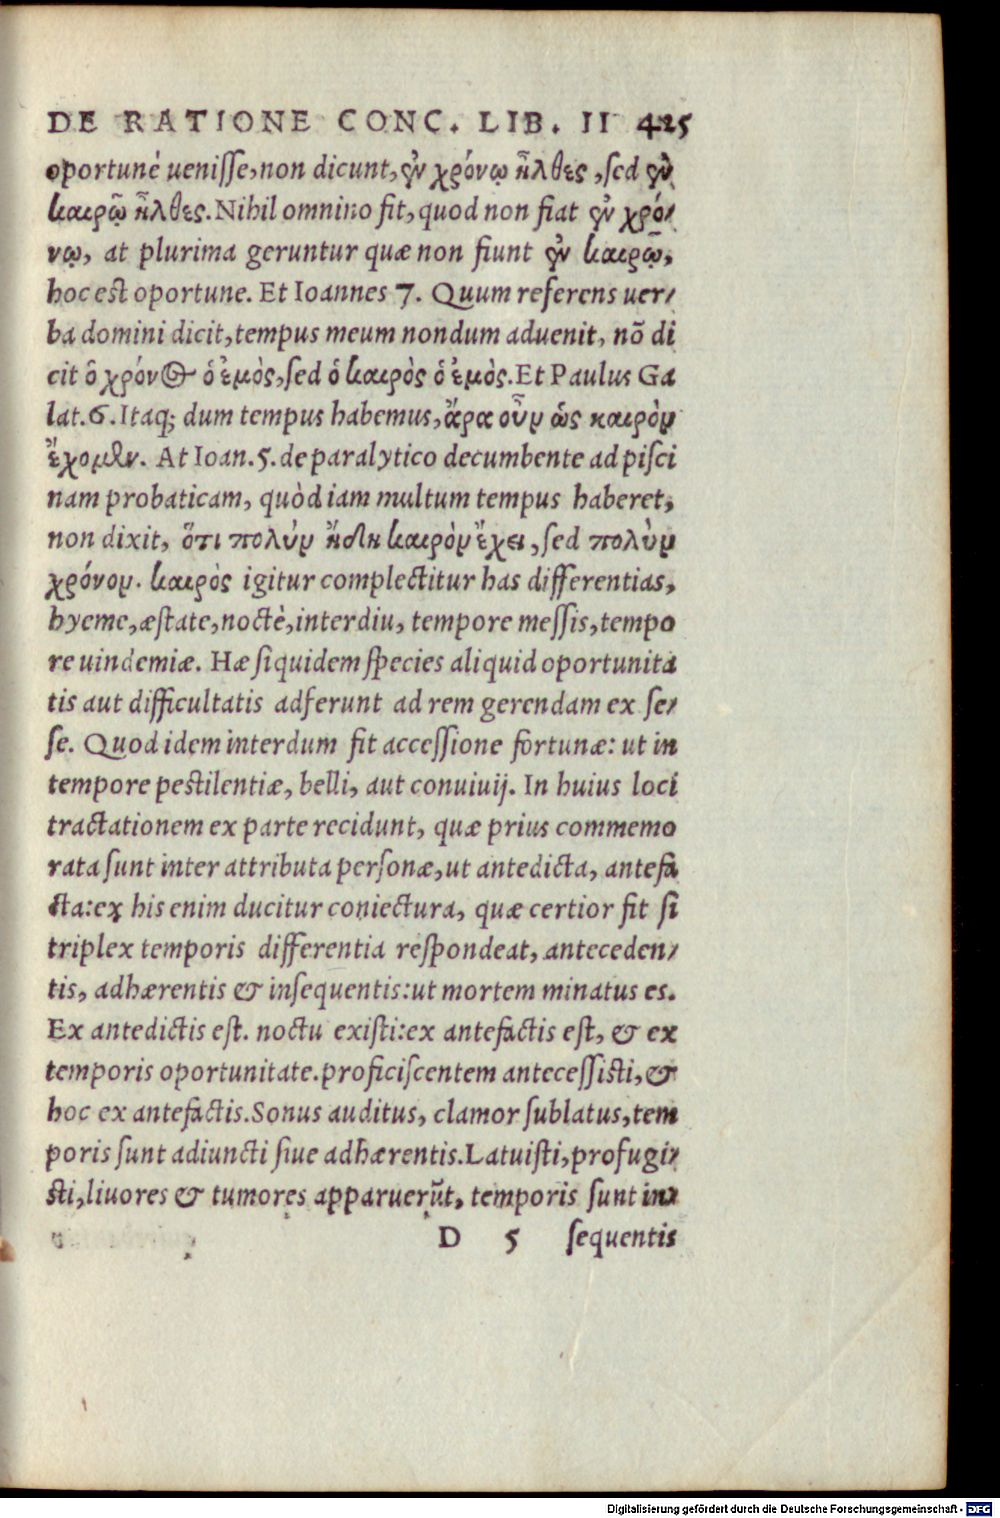 DE RATIONE CONC. LIB. II 425
oportunè uenisse, non dicunt, ἐν χρόνῳ ἦλθες, sed ἐν
καιρῷ ἦλθες. Nihil omnino fit, quod non fiat ἐν χρό-
νῳ, at plurima geruntur quæ non fiunt ἐν καιρῷ,
hoc est oportune. Et Ioannes 7. Quum referens uer-
ba domini dicit, tempus meum nondum aduenit, nõ di
cit ὁ χρόνος ὁ ἐμὸς, sed ὁ καιρὸς ὁ ἐμὸς. Et Paulus Ga
lat. 6. Itaq; dum tempus habemus, ἄρα οὖν ὡς καιρὸν
ἔχομεν. At Ioan. 5. de paralytico decumbente ad pisci
nam probaticam, quòd iam multum tempus haberet,
non dixit, ὅτι πολὺν ἤδη καιρὸν ἔχει, sed πολὺν
χρόνον. καιρὸς igitur complectitur has differentias,
hyeme, æstate, noctè, interdiu, tempore messis, tempo
re uindemiæ. Hæ siquidem species aliquid oportunita
tis aut difficultatis adferunt ad rem gerendam ex se-
se. Quod idem interdum fit accessione fortunæ: ut in
tempore pestilentiæ, belli, aut conuiuij. In huius loci
tractationem ex parte recidunt, quæ prius commemo
rata sunt inter attributa personæ, ut antedicta, antefa
cta: ex his enim ducitur coniectura, quæ certior fit si
triplex temporis differentia respondeat, anteceden-
tis, adhærentis & insequentis: ut mortem minatus es.
Ex antedictis est. noctu existi: ex antefactis est, & ex
temporis oportunitate. proficiscentem antecessisti, &
hoc ex antefactis. Sonus auditus, clamor sublatus, tem
poris sunt adiuncti siue adhærentis. Latuisti, profugi-
sti, liuores & tumores apparuerũt, temporis sunt in-
D 5 sequentis
Digitalisierung gefördert durch die Deutsche Forschungsgemeinschaft - DFG